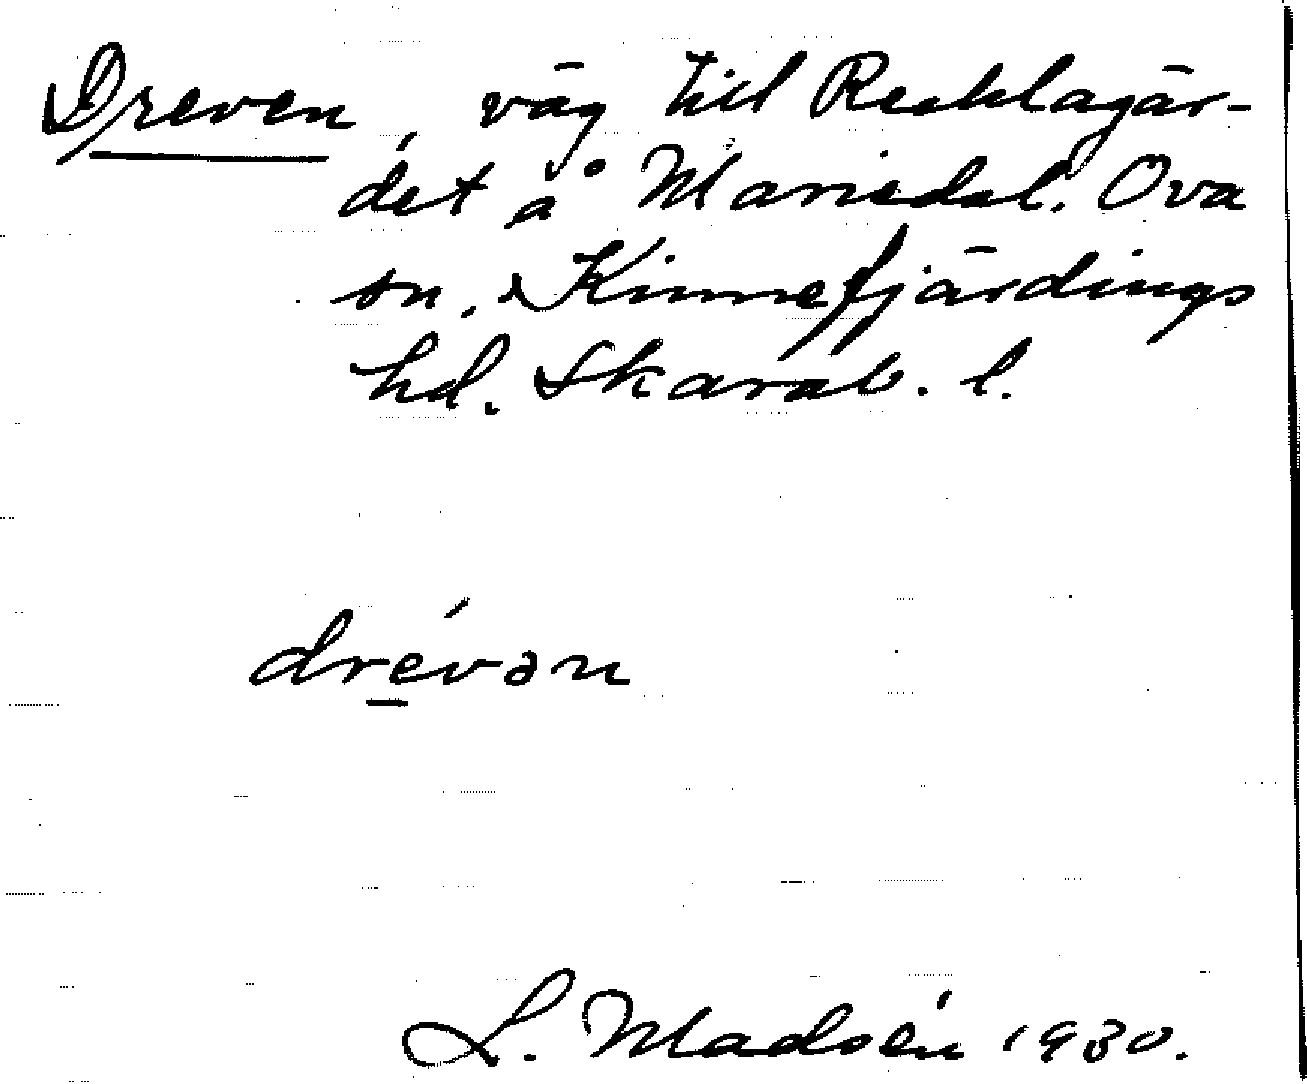 Dreven, väg till Resklagär-
det å Mariedal. Ova
sn, Kinnefjärdings
hd. Skarab. l.
drévən
L. Madsén 1930.